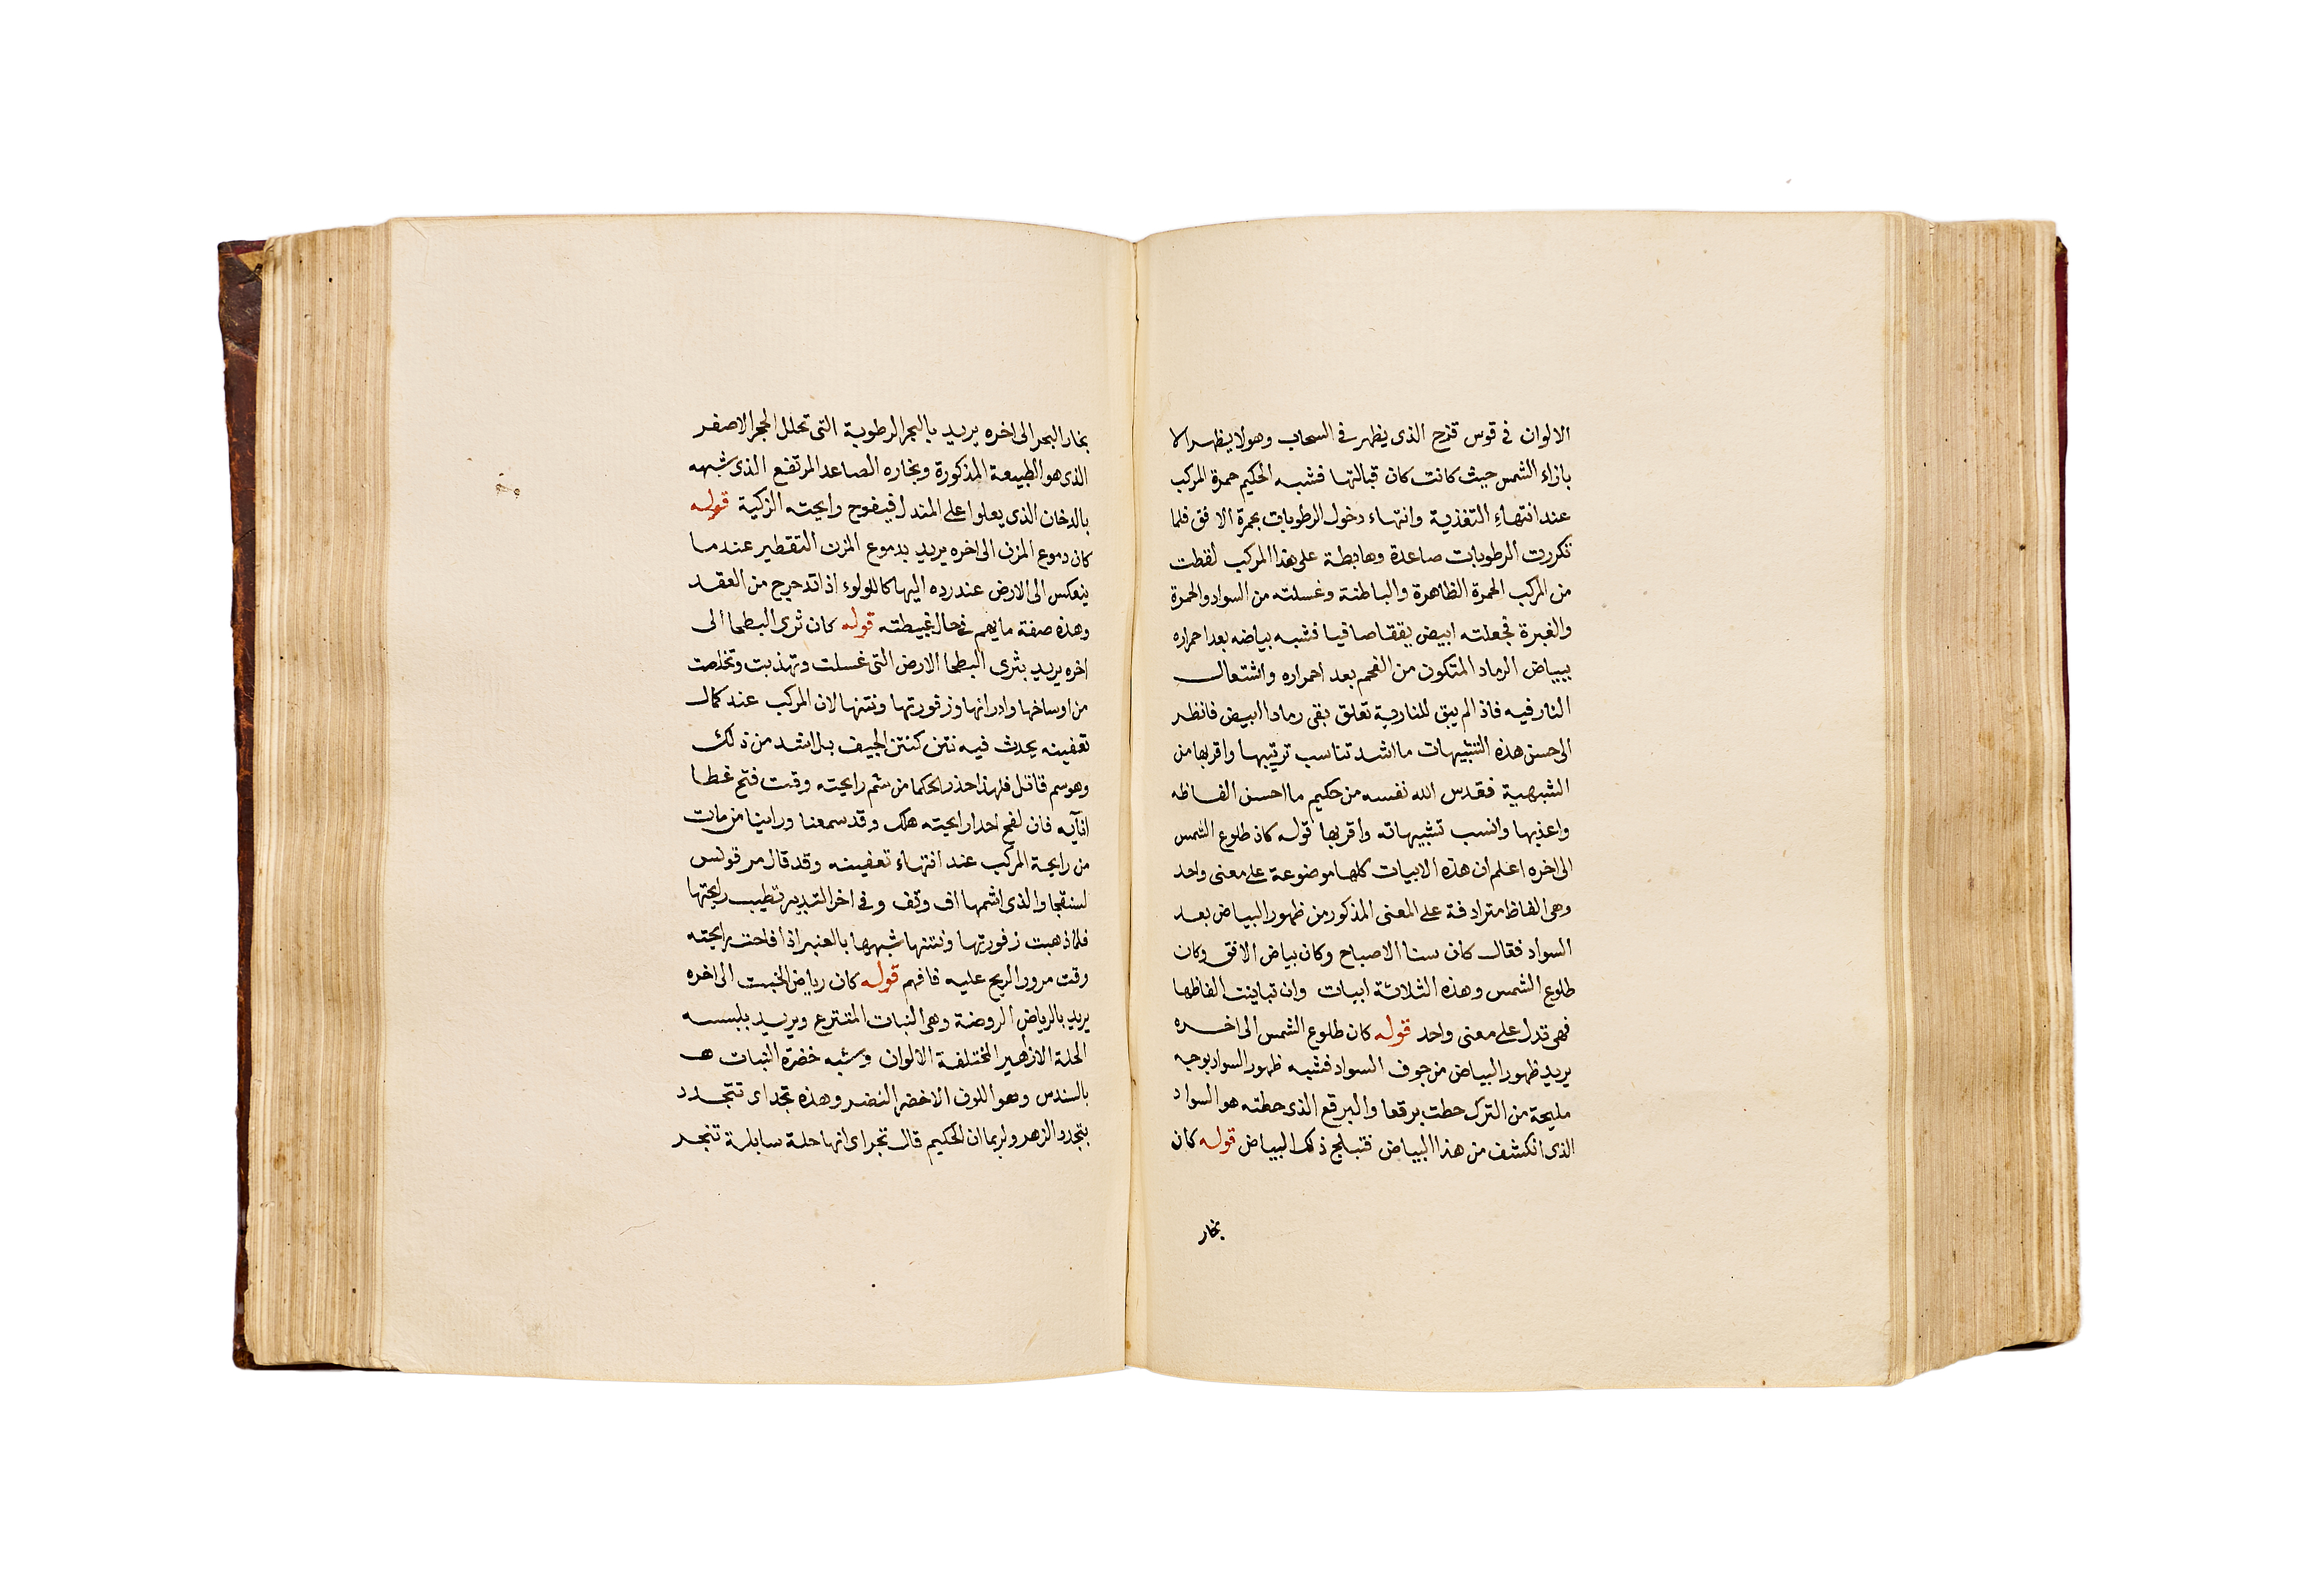 الالوان في قوس قزح الذى يظهر في السحاب وهو لا يظهر الا
بازاء الشمس حيث كانت كان قبالتها فشبه الحكيم حمرة المركب
عند انتهاء التغذية وانتهاء دخول الرطوبات بحمرة الافق فلما
تكررت الرطوبات صاعدة وهابطة على هذا المركب لقطت
من المركب الحمرة الظاهرة والباطنة وغسلته من السواد والحمرة
والغبرة فجعلته ابيض يققا صافيا فشبه بياضه بعد احمراره
ببياض الرماد المتكون من الفحم بعد احمراره واشتعال
النار فيه فاذا لم يبق للنارية تعلق بقى رمادا ابيض فانظر
الى حسن هذه التشبيهات ما اشد تناسب ترتيبها واقربها من
الشبهية فقدس الله نفسه من حكيم ما احسن الفاظه
واعذبها وانسب تشبيهاته واقربها قوله كان طلوع الشمس
الى اخره اعلم ان هذه الابيات كلها موضوعة على معنى واحد
وهى الفاظ مترادفة على المعنى المذكور من ظهور البياض بعد
السواد فقال كان سنا الاصباح وكان بياض الافق وكان
طلوع الشمس وهذه الثلاثة ابيات وان تباينت الفاظها
فهى تدل على معنى واحد قوله كان طلوع الشمس الى اخره
يريد ظهور البياض من جوف السواد فشبه ظهور السواد بوجه
مليحة من الترك حطت برقعا والبرقع الذى حطته هو السواد
الذى انكشف من هذا البياض فتبلج ذلك البياض قوله كان
بخار
بخار البحر الى اخره يريد بالبحر الرطوبة التى تحلل الحجر الاصفر
الذى هو الطبيعة المذكورة وبخاره الصاعد المرتفع الذى شبهه
بالدخان الذى يعلوا على المندل فيفوح رايحته الزكية قوله
كان دموع المزن الى اخره يريد بدموع المزن التقطير عندما
ينعكس الى الارض عند رده اليها كاللولوء اذا تدحرج من العقد
وهذه صفة مايهم في حال غبيطته قوله كان ثرى البطحا الى
اخره يريد بثرى البطحا الارض التى غسلت وتهذبت وتخلصت
من اوساخها وادرانها وزفورتها ونتنها لان المركب عند كمال
تعفينه يحدث فيه نتن كنتن الجيف بل اشد من ذلك
وهو سم قاتل فلهذا حذر الحكما من شم رايحته وقت فتح غطا
انآيه فان لفح احدا رايحته هلك وقد سمعنا وراينا من مات
من رايحة المركب عند انتهاء تعفينه وقد قال مرقونس
لسنقجا والذى اشمها اف وتف وفى اخر التدبير تطيب رايحتها
فلما ذهبت زفورتها ونتنها شبهها بالعنبر اذا فاحت رايحته
وقت مرور الريح عليه فافهم قوله كان رياض الخبت الى اخره
يريد بالرياض الروضة وهى النبات المتنرع ويريد بلبسه
الحلة الازهير المختلفة الالوان وشبه خضرة النبات هـ
بالسندس وهو اللون الاخضر النضر وهذه تجدا اى تتجدد
بتجدد الزهر ولربما ان الحكيم قال تجر اى انها حلة سابلة تنجر